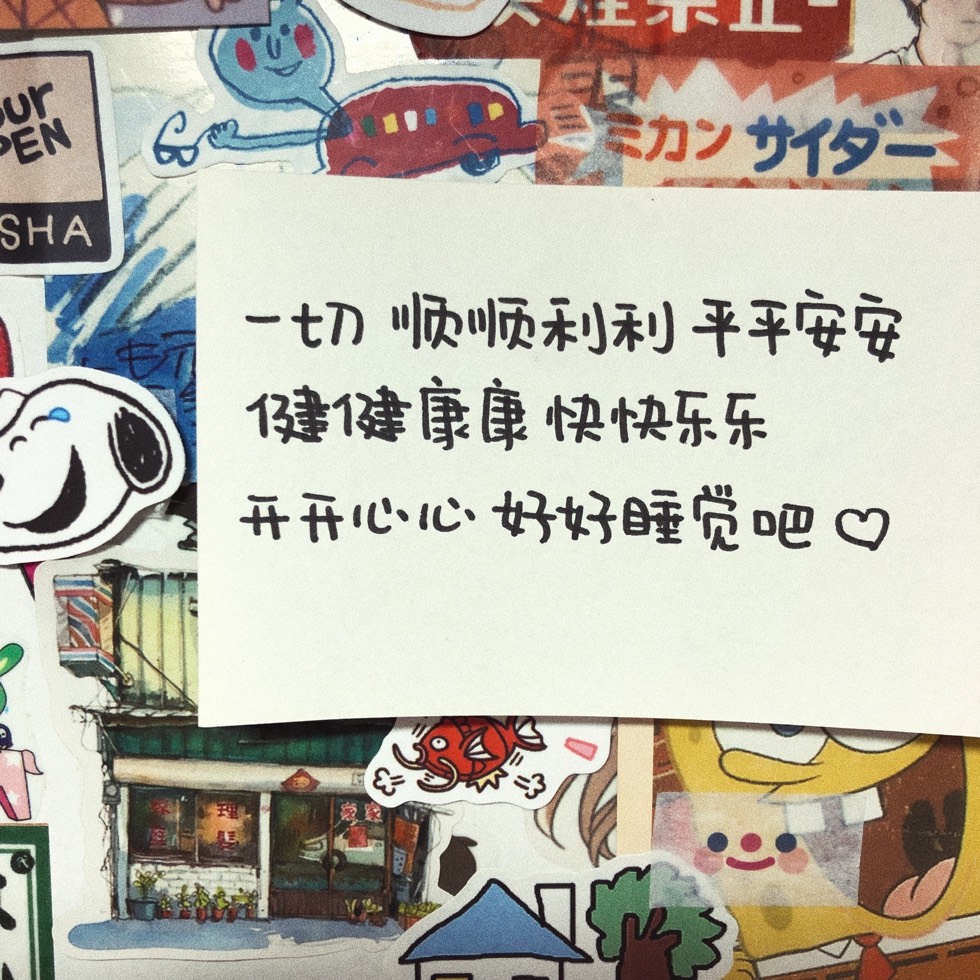 OUR
PEN
SHA
ミカン サイダー
一切 顺顺利利 平平安安
健健康康 快快乐乐
开开心心 好好睡觉吧♡
理髪